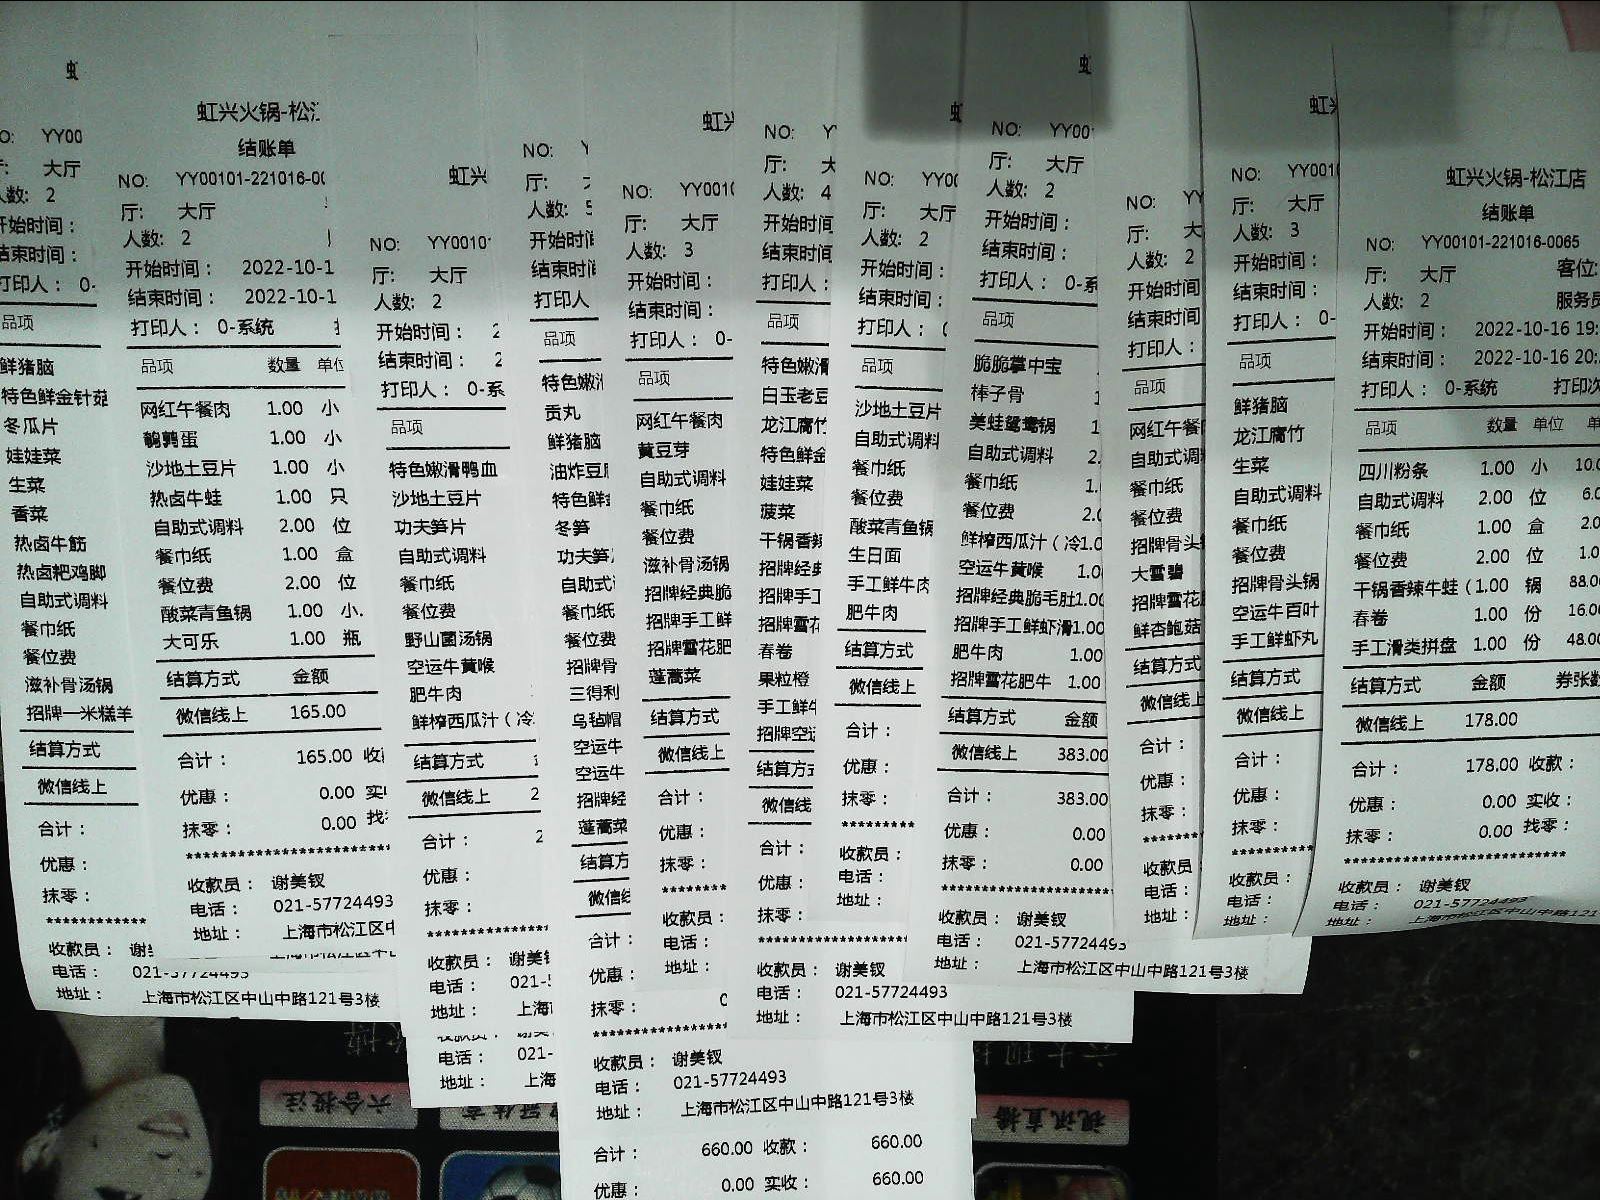 虹
NO: YY00
厅: 大厅
人数: 2
开始时间：
结束时间：
打印人： 0-
品项
鲜猪脑
特色鲜金针菇
冬瓜片
娃娃菜
生菜
香菜
热卤牛筋
热卤耙鸡脚
自助式调料
餐巾纸
餐位费
滋补骨汤锅
招牌一米糕羊
结算方式
微信线上
合计：
优惠：
抹零：
收款员： 谢美
电话： 021-57724493
地址： 上海市松江区中山中路121号3楼
虹兴火锅-松江
结账单
NO: YY00101-221016-00
厅: 大厅
人数: 2
开始时间： 2022-10-1
结束时间： 2022-10-1
打印人： 0-系统
品项 数量 单位
网红午餐肉 1.00 小
鹌鹑蛋 1.00 小
沙地土豆片 1.00 小
热卤牛蛙 1.00 只
自助式调料 2.00 位
餐巾纸 1.00 盒
餐位费 2.00 位
酸菜青鱼锅 1.00 小.
大可乐 1.00 瓶
结算方式 金额
微信线上 165.00
合计： 165.00 收
优惠： 0.00 实
抹零： 0.00 找
收款员： 谢美钗
电话： 021-57724493
地址： 上海市松江区中
虹兴
NO: YY0010
厅: 大厅
人数: 2
开始时间： 2
结束时间： 2
打印人： 0-系
品项
特色嫩滑鸭血
沙地土豆片
功夫笋片
自助式调料
餐巾纸
餐位费
野山菌汤锅
空运牛黄喉
肥牛肉
鲜榨西瓜汁（冷
结算方式
微信线上 2
合计： 2
优惠：
抹零：
收款员： 谢美
电话： 021-5
地址： 上海市
电话： 021-
地址： 上海
NO: Y
厅:
人数: 5
开始时间
结束时间
打印人
品项
特色嫩滑
贡丸
鲜猪脑
油炸豆
特色鲜
冬笋
功夫笋
自助式
餐巾纸
餐位费
招牌骨
三得利
乌毡帽
空运牛
空运牛
招牌经
蓬蒿菜
结算方
微信线
合计：
优惠：
抹零： 0
收款员： 谢美钗
电话： 021-57724493
地址： 上海市松江区中山中路121号3楼
合计： 660.00 收款： 660.00
优惠： 0.00 实收： 660.00
虹兴
NO: YY0010
厅: 大厅
人数: 3
开始时间：
结束时间：
打印人： 0-
品项
网红午餐肉
黄豆芽
自助式调料
餐巾纸
餐位费
滋补骨汤锅
招牌经典脆
招牌手工鲜
招牌雪花肥
蓬蒿菜
结算方式
微信线上
合计：
优惠：
抹零：
收款员：
电话：
地址：
NO: Y
厅: 大
人数: 4
开始时间：
结束时间：
打印人：
品项
特色嫩滑
白玉老豆
龙江腐竹
特色鲜金
娃娃菜
菠菜
干锅香辣
招牌经典
招牌手工
招牌雪花
春卷
果粒橙
手工鲜牛
招牌空运
结算方式
微信线
合计：
优惠：
抹零：
收款员： 谢美钗
电话： 021-57724493
地址： 上海市松江区中山中路121号3楼
虹
NO: YY00
厅: 大厅
人数: 2
开始时间：
结束时间：
打印人： 0
品项
沙地土豆片
自助式调料
餐巾纸
餐位费
酸菜青鱼锅
生日面
手工鲜牛肉
肥牛肉
结算方式
微信线上
合计：
优惠：
抹零：
收款员：
电话：
地址：
虹
NO: YY00
厅: 大厅
人数: 2
开始时间：
结束时间：
打印人： 0-系
品项
脆脆掌中宝
棒子骨 1
美蛙鸳鸯锅 1
自助式调料 2.
餐巾纸 1.
餐位费 2.0
鲜榨西瓜汁（冷1.0
空运牛黄喉 1.0
招牌经典脆毛肚1.00
招牌手工鲜虾滑1.00
肥牛肉 1.00
招牌雪花肥牛 1.00
结算方式 金额
微信线上 383.00
合计： 383.00
优惠： 0.00
抹零： 0.00
收款员： 谢美钗
电话： 021-57724493
地址： 上海市松江区中山中路121号3楼
NO: YY
厅: 大
人数: 2
开始时间
结束时间
打印人：
品项
网红午餐
自助式调
餐巾纸
餐位费
招牌骨头
大雪碧
招牌雪花
鲜杏鲍菇
结算方式
微信线上
合计：
优惠：
抹零：
收款员
电话：
地址：
虹兴
NO: YY001
厅: 大厅
人数: 3
开始时间：
结束时间：
打印人： 0-
品项
鲜猪脑
龙江腐竹
生菜
自助式调料
餐巾纸
餐位费
招牌骨头锅
空运牛百叶
手工鲜虾丸
结算方式
微信线上
合计：
优惠：
抹零：
收款员：
电话：
地址：
虹兴火锅-松江店
结账单
NO: YY00101-221016-0065
厅: 大厅 客位:
人数: 2 服务员
开始时间： 2022-10-16 19:
结束时间： 2022-10-16 20:
打印人： 0-系统 打印次
品项 数量 单位 单
四川粉条 1.00 小 10.0
自助式调料 2.00 位 6.0
餐巾纸 1.00 盒 2.0
餐位费 2.00 位 1.0
干锅香辣牛蛙（1.00 锅 88.00
春卷 1.00 份 16.00
手工滑类拼盘 1.00 份 48.00
结算方式 金额 券张数
微信线上 178.00
合计： 178.00 收款：
优惠： 0.00 实收：
抹零： 0.00 找零：
收款员： 谢美钗
电话： 021-57724493
地址： 上海市松江区中山中路121
六合投注
视讯直播